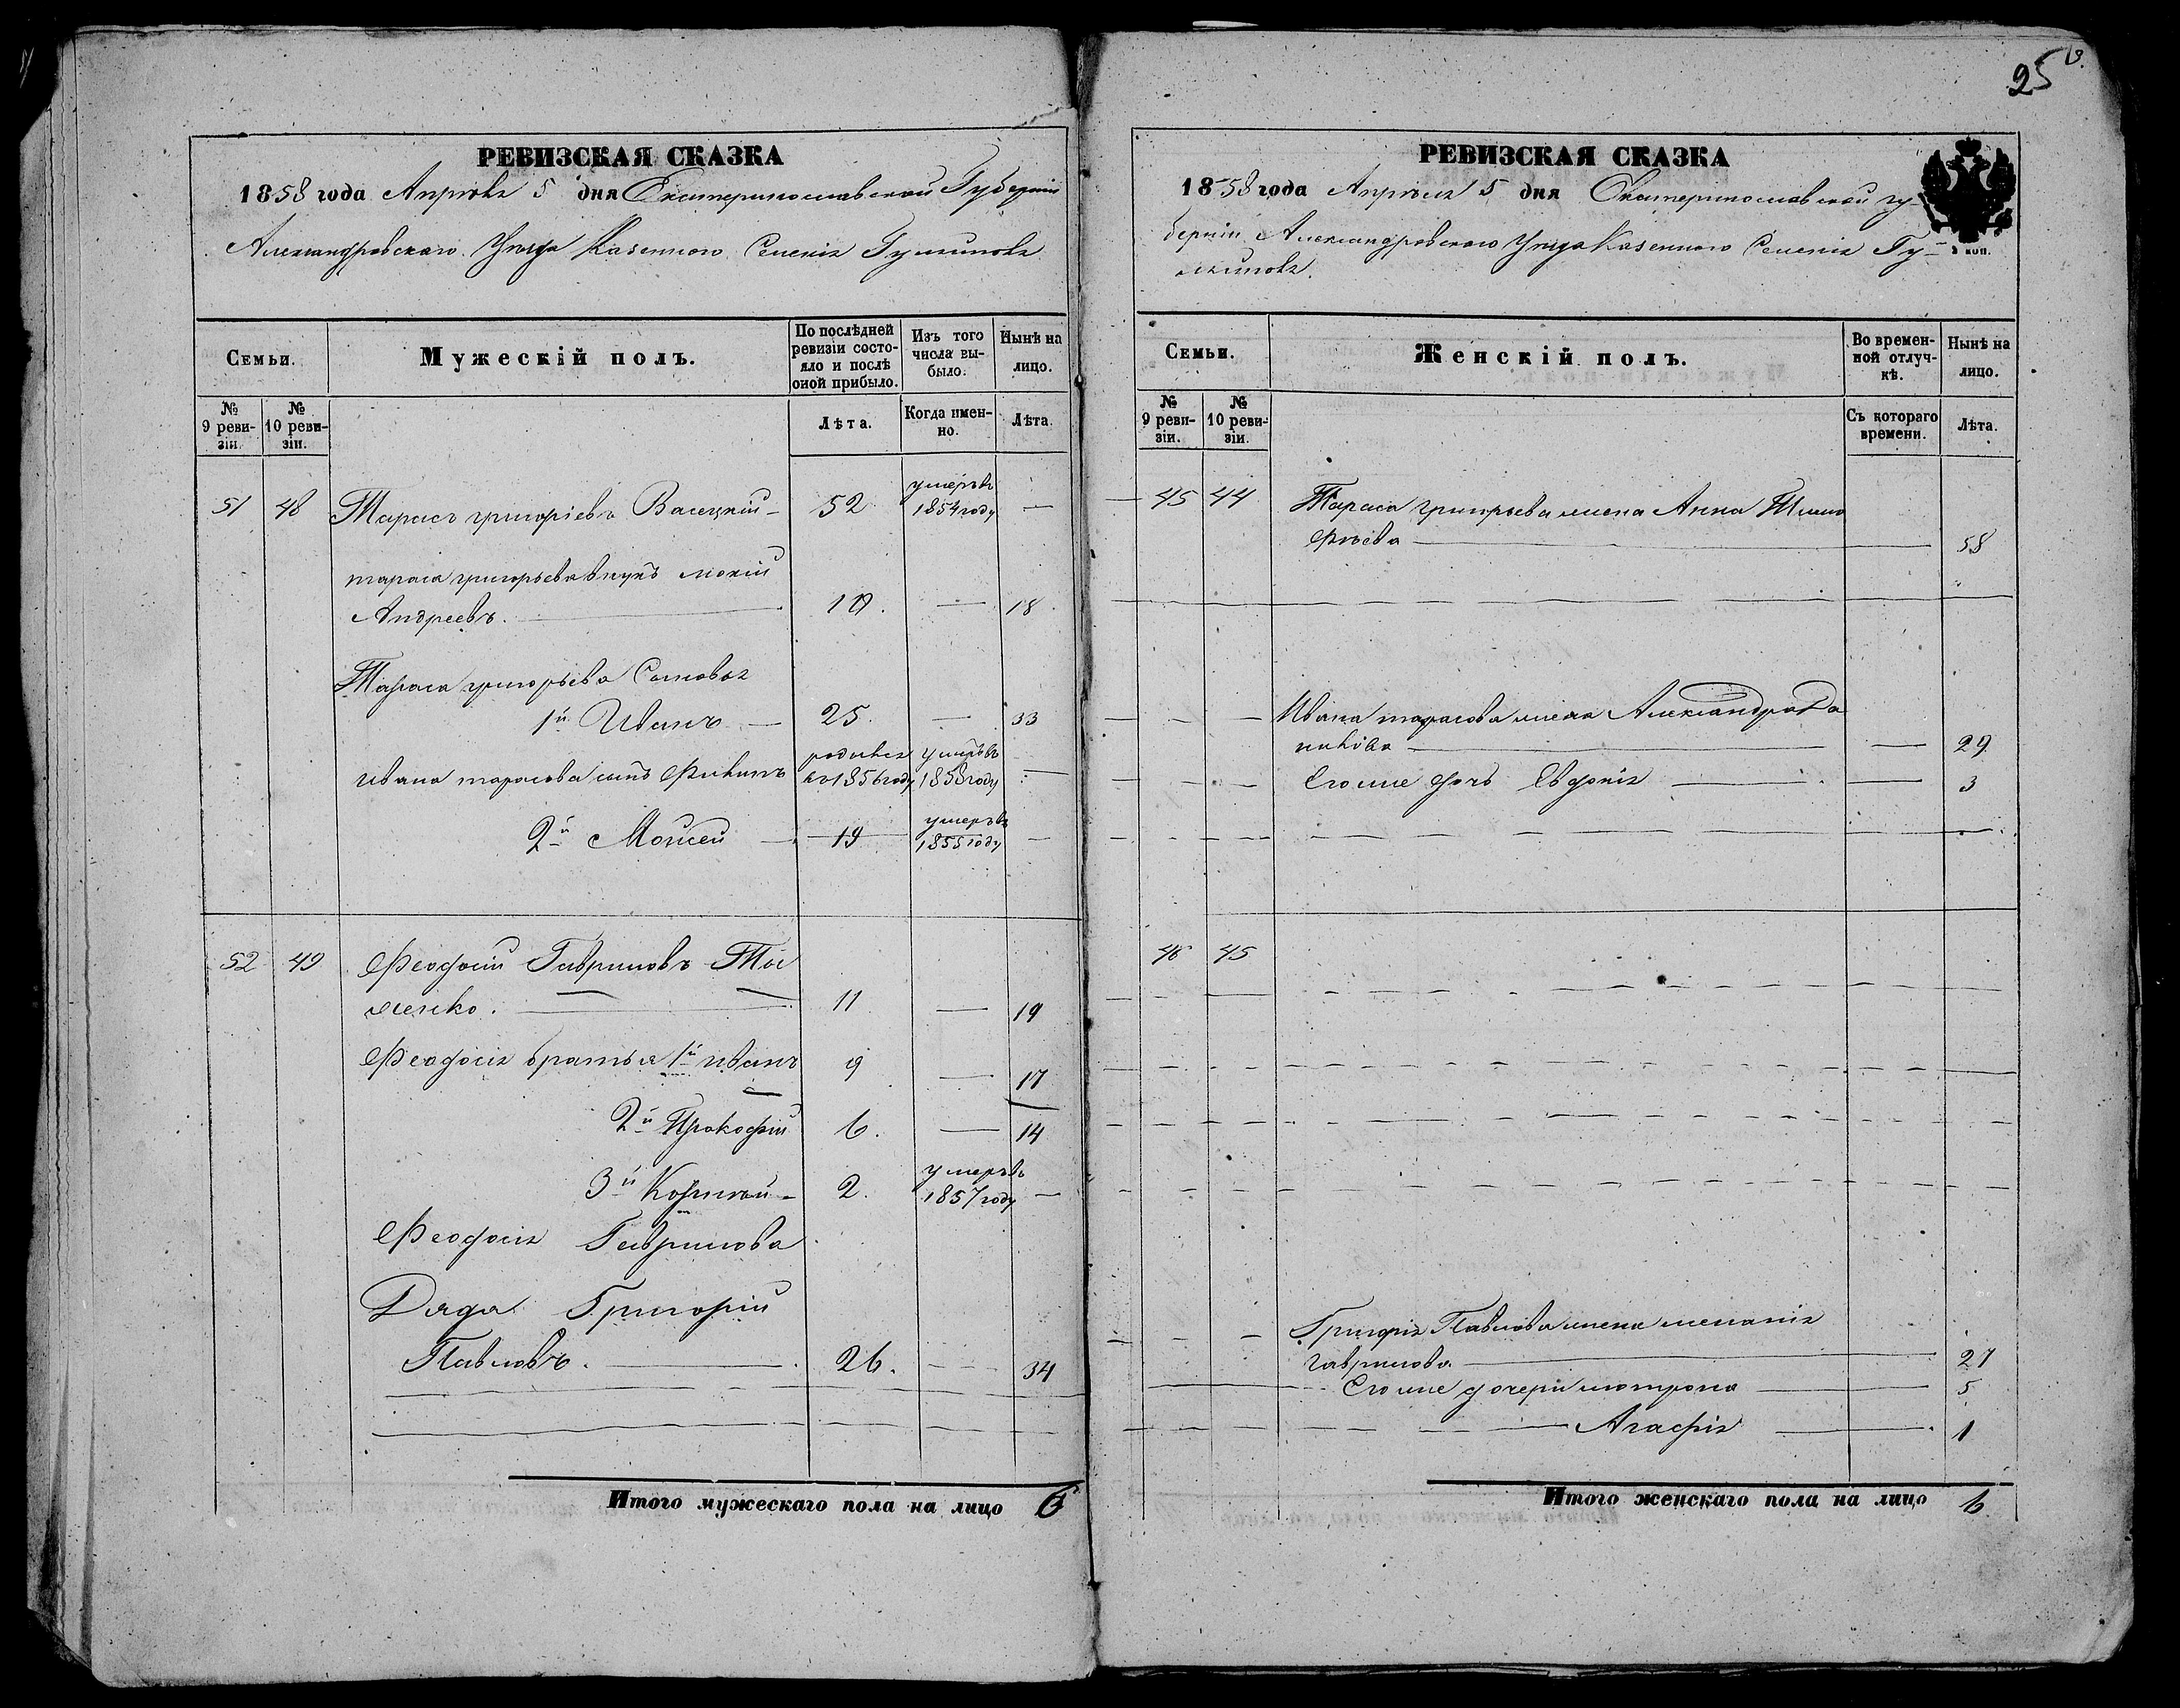 25
РЕВИЗСКАЯ СКАЗКА
1858 года Апрѣля 5 дня Екатеринославской Губерніи
Александровскаго Уѣзда Казеннаго Селенія
Семьи.
Мужескій полъ.
По послѣдней ревизіи состояло и послѣ оной прибыло.
Изъ того числа выбыло.
Нынѣ на лицо.
№ 9 ревизіи.
№ 10 ревизіи.
Лѣта.
Когда именно.
Лѣта.
51 48 Тарасъ григоріевъ Васецкій 52 умеръ въ 1854 году —
тараса григорьева внукъ мокій
Андреевъ. 10. — 18.
Тараса григорьева Сыновья
1й Иванъ — 25. — 33
Ивана тарасова сынъ родился въ 1856 году умеръ въ 1858 году —
2й Моисей — 19 умеръ въ 1855 году —
52 49 Феодосій Гавриловъ
11 — 19
Феодосія братья 1й иванъ 9 — 17
2й Прокофій 6. — 14
3й Корнѣй — 2. умеръ въ 1857 году —
Феодосія Гаврилова
Дядя Григорій
Павловъ. 26. — 34
Итого мужескаго пола на лицо 6
РЕВИЗСКАЯ СКАЗКА
1858 года Апрѣля 5 дня Екатеринославской гу
берніи Александровскаго Уѣзда Казеннаго Селенія
2 коп.
Семьи.
Женскій полъ.
Во временной отлучкѣ.
Нынѣ на лицо.
№ 9 ревизіи.
№ 10 ревизіи.
Съ котораго времени.
Лѣта.
45 44 Тараса григорьева жена Анна Тимо
фѣева — 58
Ивана тарасова жена Александра Да
нилова — — 29
Его же дочь Евдокія — — 3
46 45
Григорія Павлова жена меланія
гаврилова — 27
Его же дочери мотрона — 5
Агафія — 1
Итого женскаго пола на лицо 6